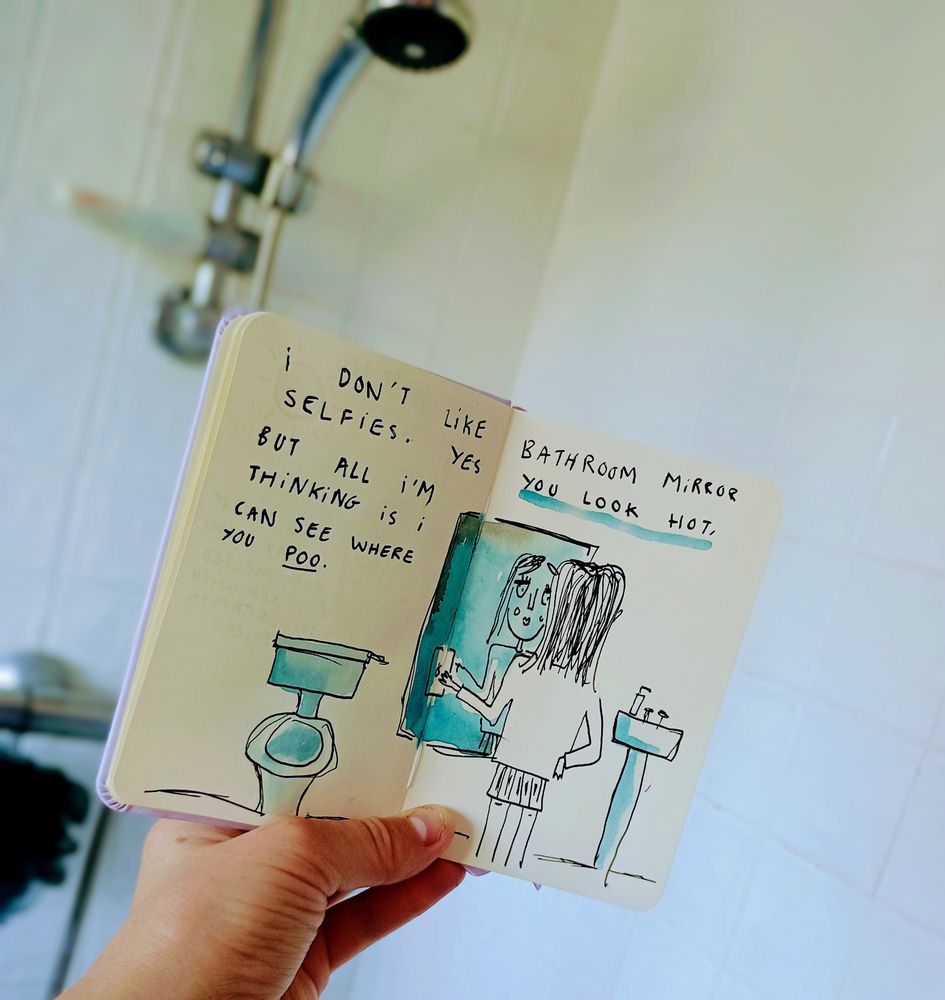 i DON'T LiKE BATHROOM MiRROR
SELFiES. YES YOU LOOK HOT,
BUT ALL i'M
THiNKiNG iS i
CAN SEE WHERE
YOU POO.